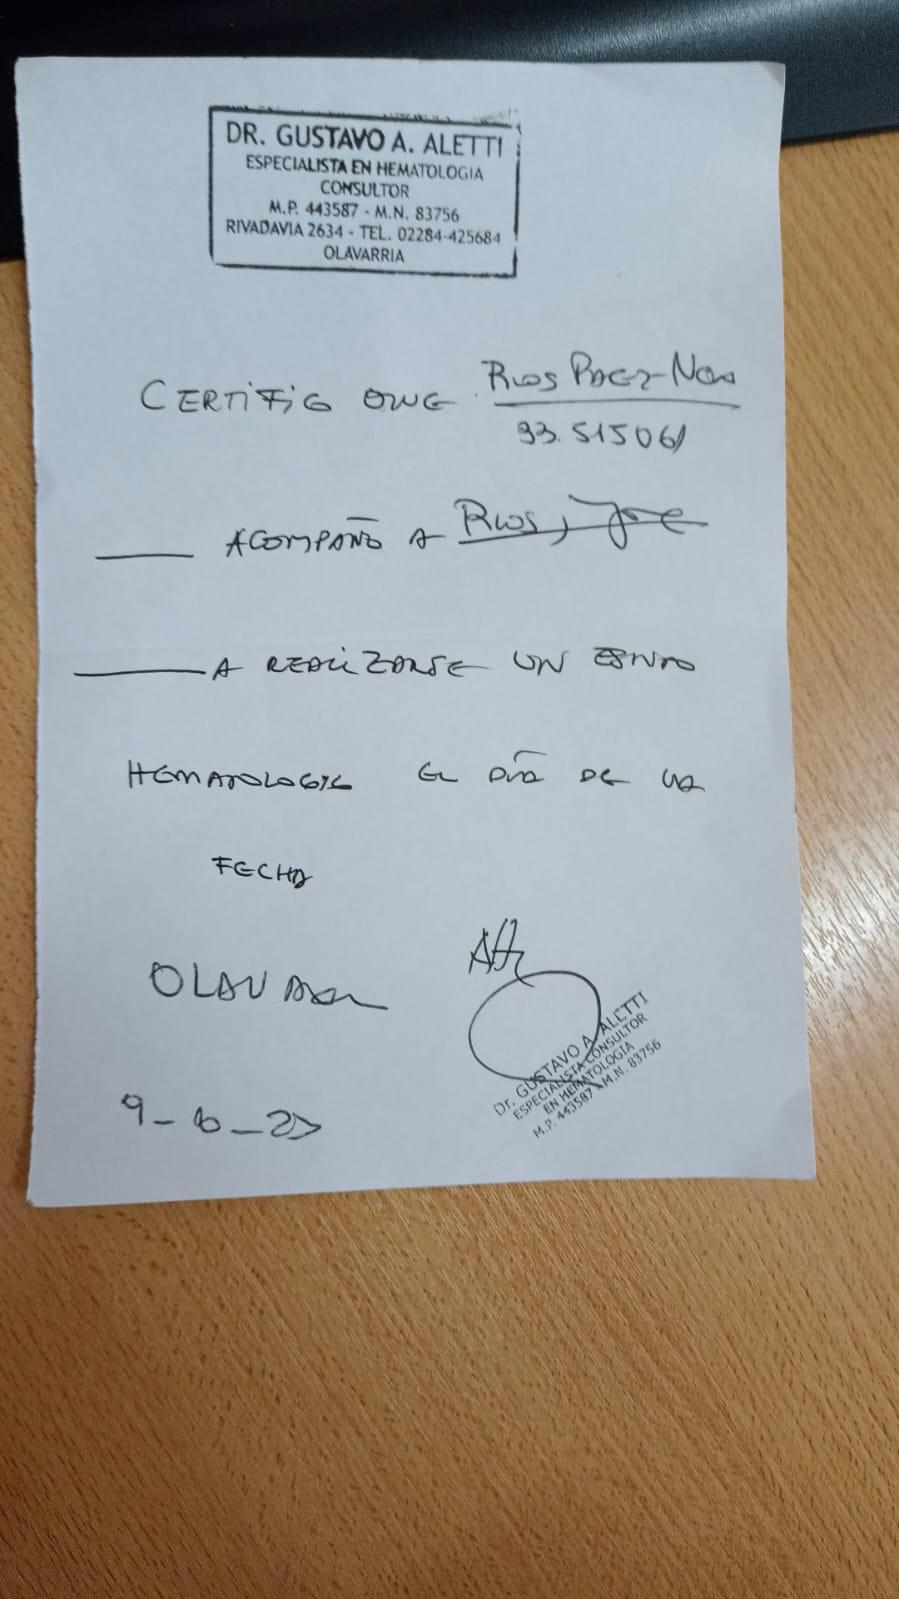 DR. GUSTAVO A. ALETTI
ESPECIALISTA EN HEMATOLOGIA
CONSULTOR
M.P. 443587 - M.N. 83756
RIVADAVIA 2634 - TEL. 02284-425684
OLAVARRIA
CERTIFICO QUE RIOS PAEZ
93.515061
ACOMPAÑO A RIOS, JOSE
A REALIZARSE UN ESTUDIO
HEMATOLOGICO EL DIA DE LA
FECHA
OLAVARRIA
Dr. GUSTAVO A. ALETTI
ESPECIALISTA CONSULTOR
EN HEMATOLOGIA
M.P. 443587 - M.N. 83756